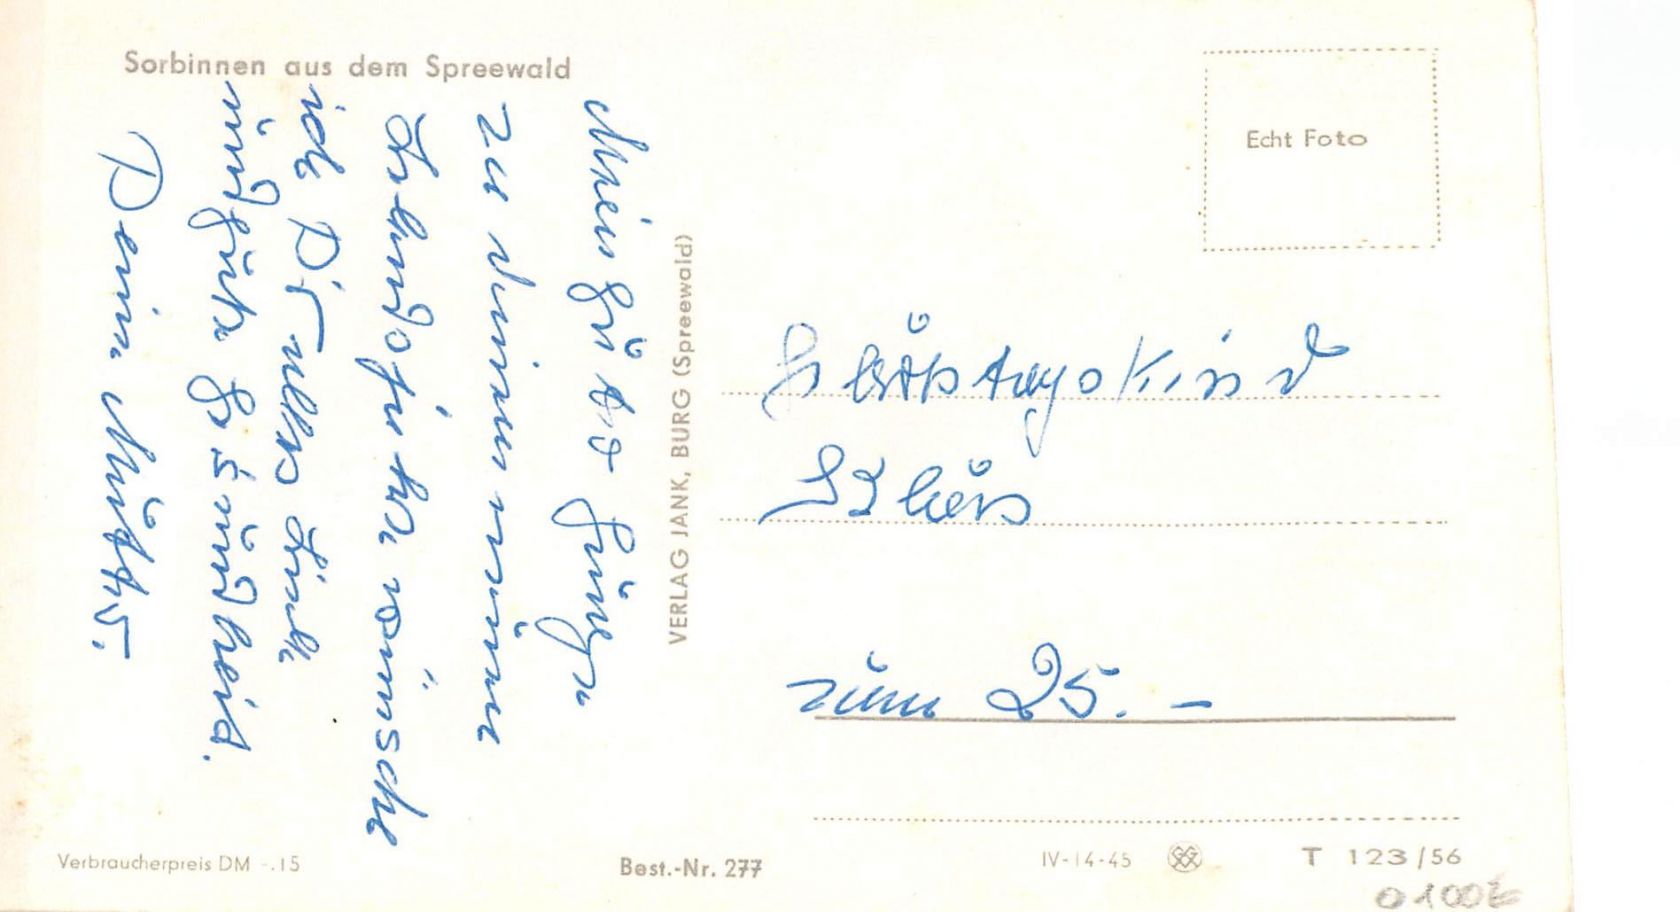 Sorbinnen aus dem Spreewald
Mein guter Junge
zu deinem neuen
Lebensjahre wünsche
ich Dir alles Liebe
und gute Gesundheit.
Deine Mutti.
VERLAG JANK, BURG (Spreewald)
Echt Foto
Geburtstagskind
zum 25. –
Verbraucherpreis DM -.15
Best.-Nr. 277
IV-14-45
T 123/56